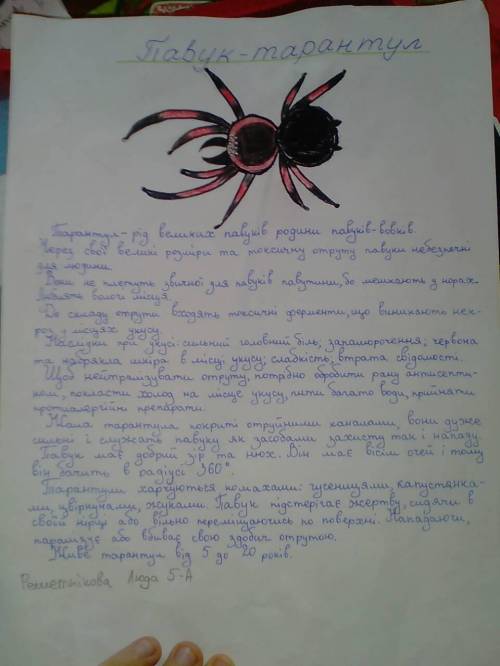 Павук-тарантул
Тарантул - рід великих павуків родини павуків-вовків.
Через свої великі розміри та токсичну отруту павуки небезпечні
для людини.
Вони не плетуть звичної для павуків павутини, бо мешкають у норах.
Люблять вологі місця.
До складу отрути входять токсичні ферменти, що виникають нек-
роз у місцях укусу.
Наслідки при укусі: сильний головний біль, запаморочення; червона
та набрякла шкіра в місці укусу; слабкість, втрата свідомості.
Щоб нейтралізувати отруту, потрібно обробити рану антисепти-
ком, покласти холод на місце укусу, пити багато води, прийняти
протиалергічні препарати.
Жала тарантула покриті отруйними каналами, вони дуже
сильні і служать павуку як засобами захисту так і нападу.
Павук має добрий зір та нюх. Він має вісім очей і тому
він бачить в радіусі 360°.
Тарантули харчуються комахами: гусеницями, капустянка-
ми, цвіркунами, жуками. Павук підстерігає жертву, сидячи в
своїй нірці або вільно переміщаючись по поверхні. Нападаючи,
паралізує або вбиває свою здобич отрутою.
Живе тарантул від 5 до 20 років.
Решетнікова Люда 5-А